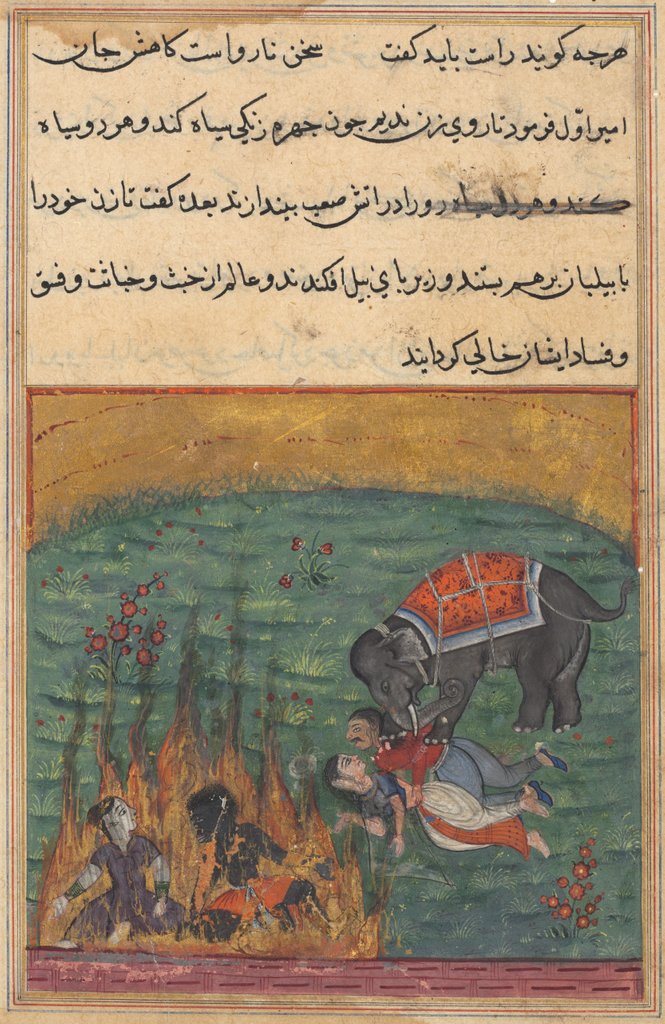 هرجه کویند راست باید کفت سخن نارواست کاهش جان
امیر اوّل فرمود تا روی زن ندیم جون جهره زنکی سیاه کند و هر دو سیاه
کند و هر دل سیاه رو را در اتش صعب بیندازند بعده کفت تا زن خود را
با بیلبان برهم بستند و زیر بای بیل افکندند و عالم از خبث و خباثت و فسق
و فساد ایشان خالی کردایند